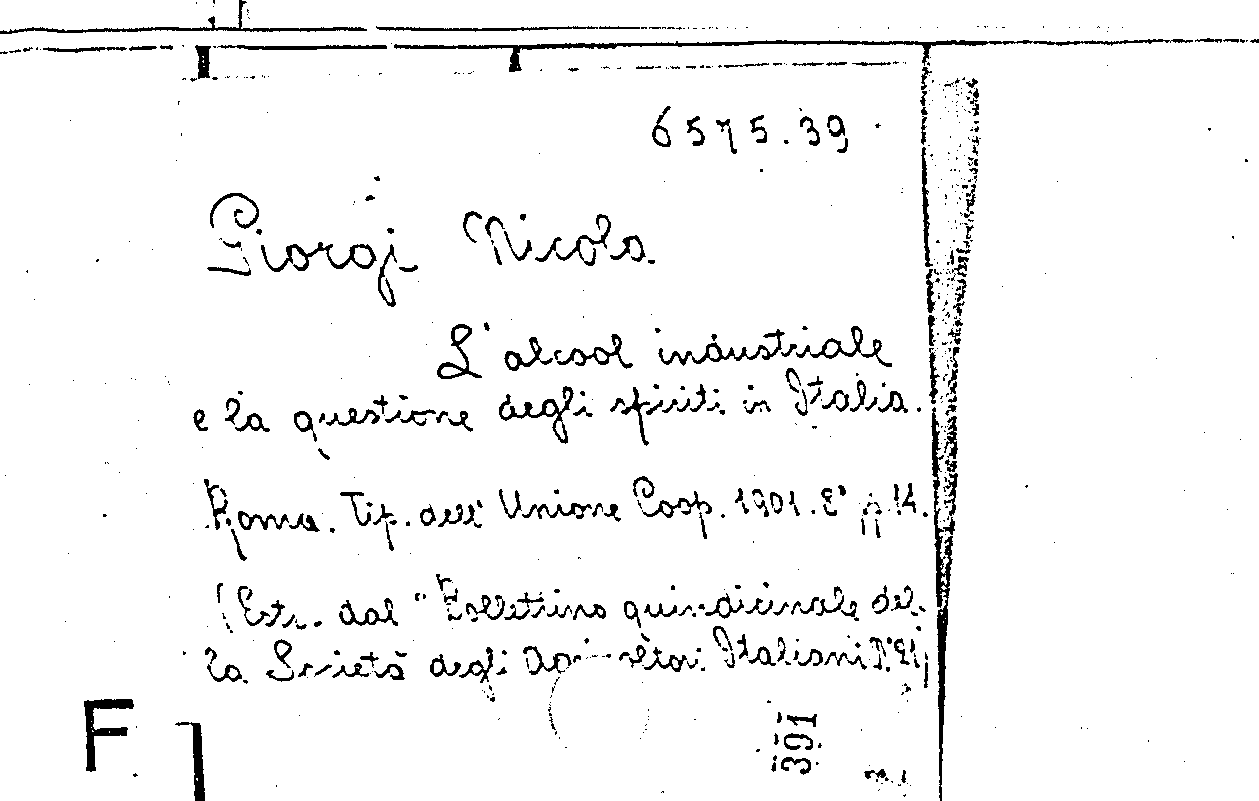 6575.39
Giorgi Nicola
L'alcool industriale
e la questione degli spiriti in Italia.
Roma. Tip. dell'Unione Coop. 1901. 8° pp. 14.
(Estr. dal "Bollettino quindicinale del-
la Società degli Agricoltori Italiani
F
391